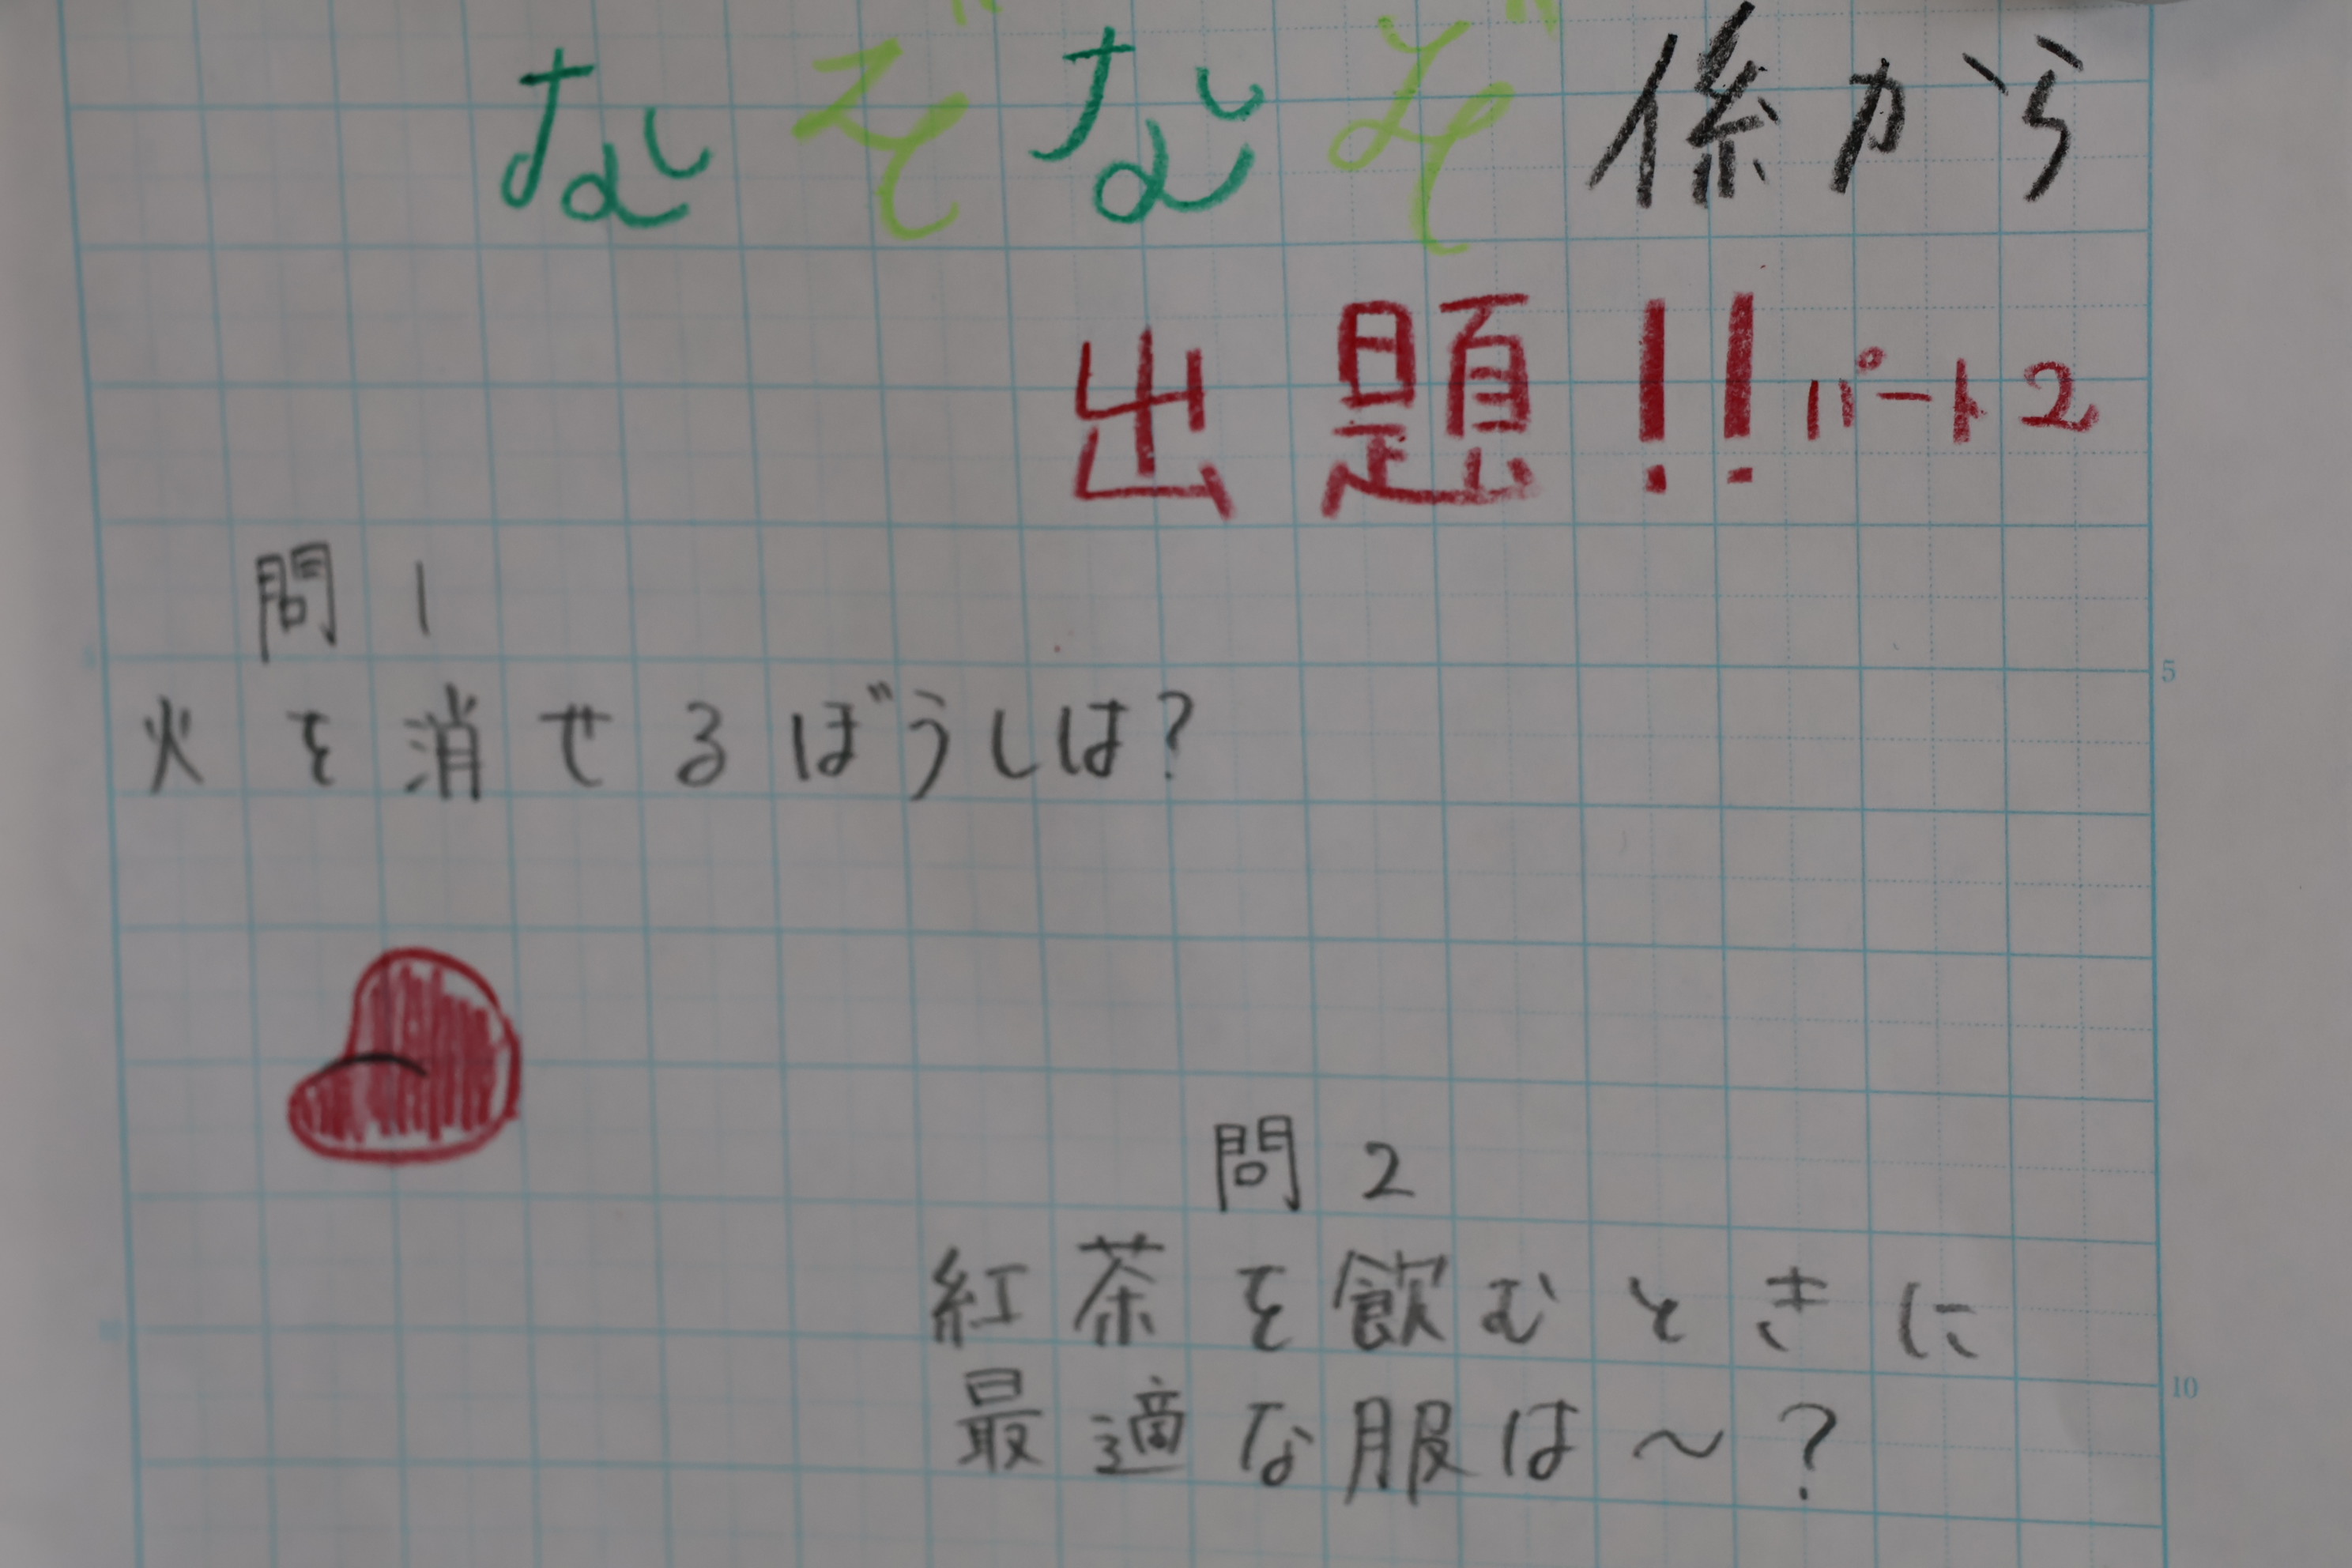 なぞなぞ係から
出題!!パート2
問1
火を消せるぼうしは?
問2
紅茶を飲むときに
最適な服は～?
5
10